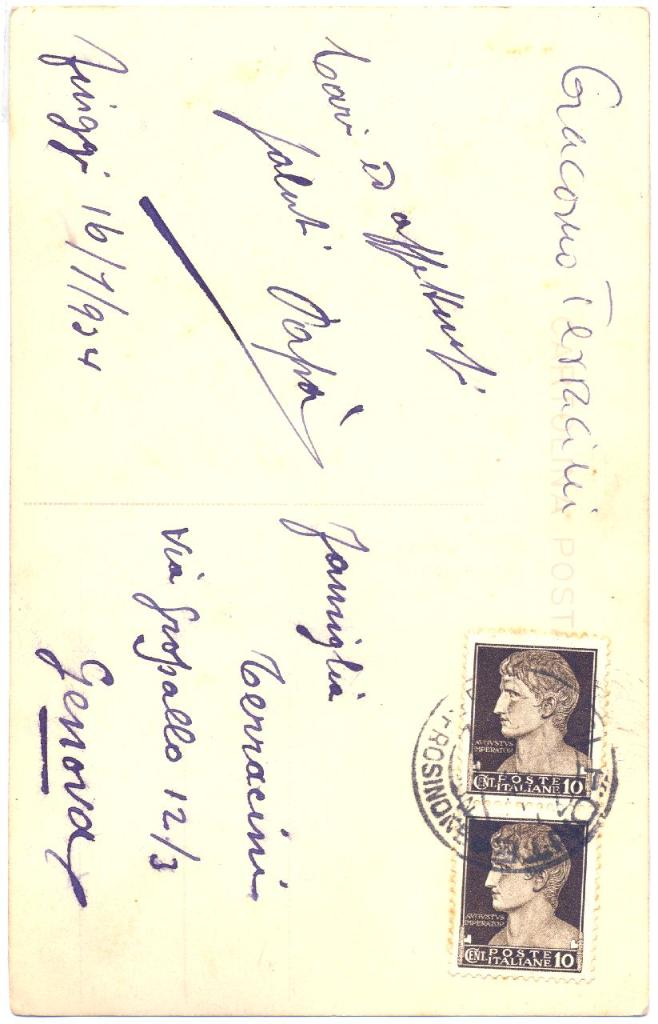 Giacomo Terracini
CARTOLINA POST
Cari ed affettuosi
saluti Papà
Fiuggi 16/7/934
Famiglia
Terracini
Via Gropallo 12/3
Genova
AVGVSTVS
IMPERATOR
POSTE
CENT. ITALIANE 10
AVGVSTVS
IMPERATOR
POSTE
CENT. ITALIANE 10
FROSINONE